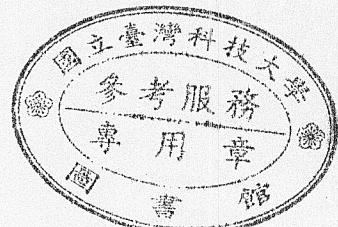 國立臺灣科技大學
參考服務
專用章
圖書館